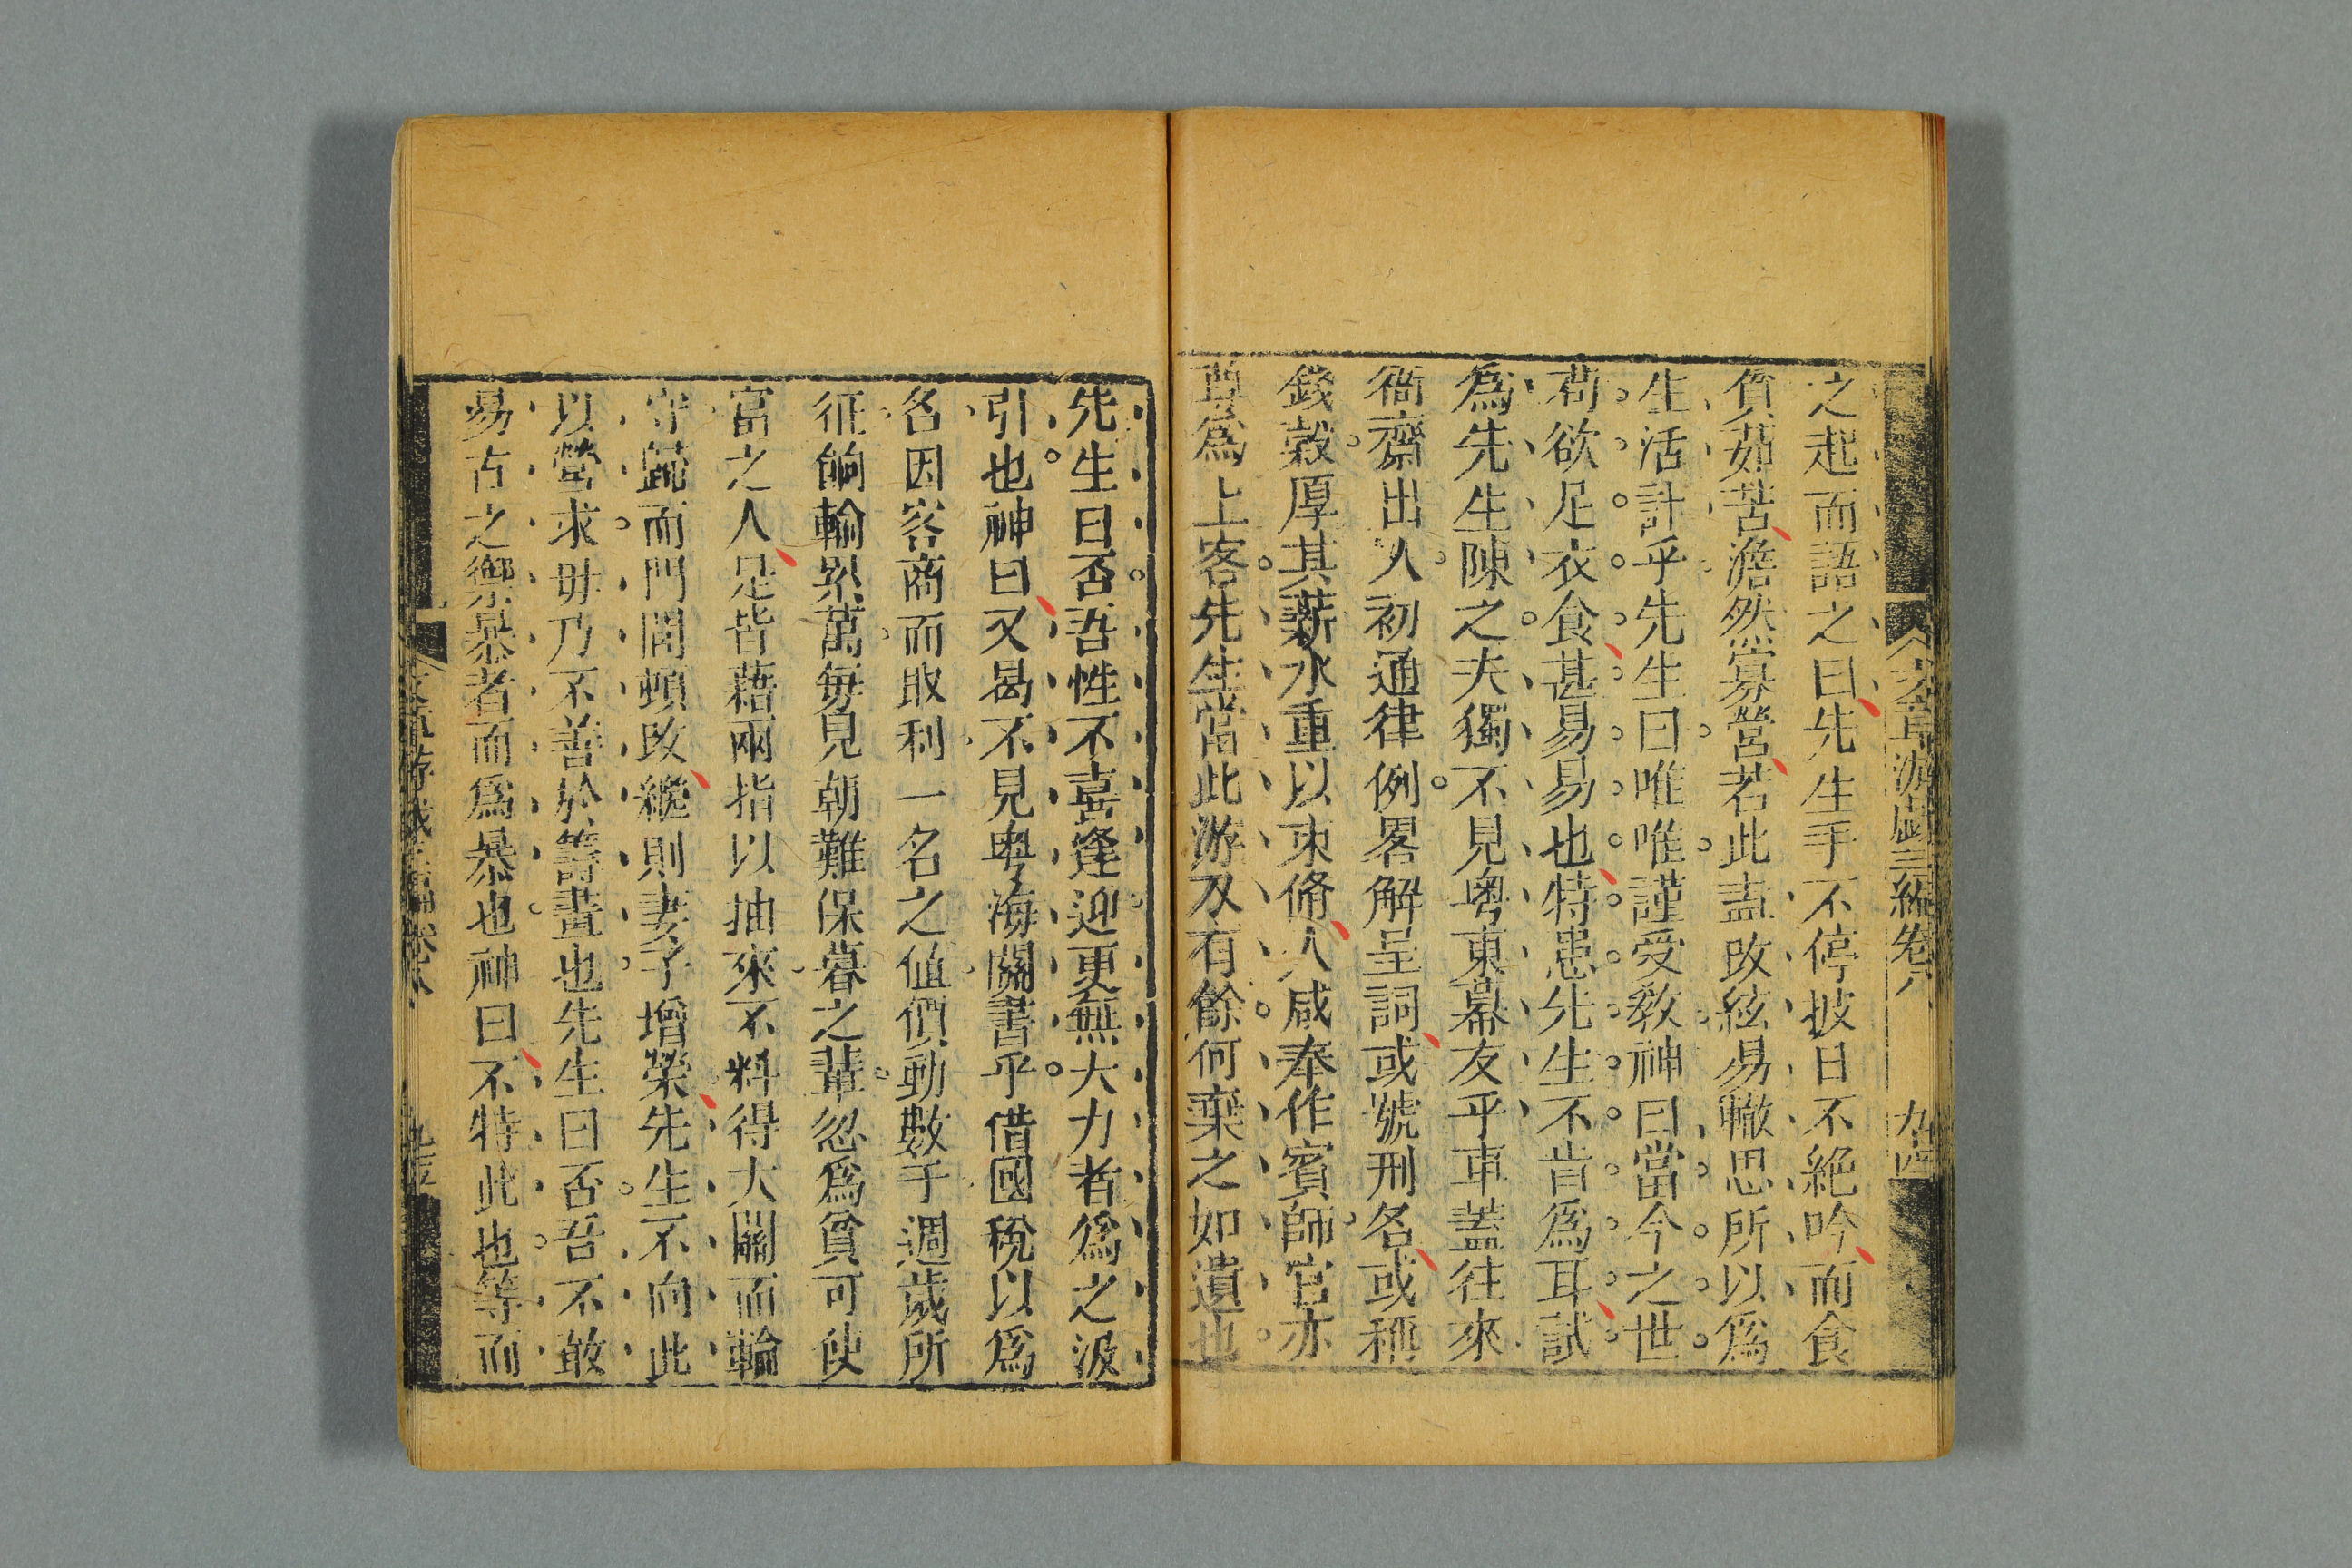 文章游戲三編卷八 九四
之起而語之曰先生手不停披日不絕吟而食
貧茹苦澹然寡營若此盍改絃易轍思所以為
生活計乎先生曰唯唯謹受教神曰當今之世
苟欲足衣食甚易易也特患先生不肯為耳試
為先生陳之夫獨不見粵東幕友乎車蓋往來
衙齋出入初通律例畧解呈詞或號刑名或稱
錢穀厚其薪水重以束脩八咸奉作賓師官亦
尊為上客先生當此游刃有餘何棄之如遺也
先生曰否吾性不喜逢迎更無大力者為之汲
引也神曰又曷不見粵海關書乎借國稅以為
名因客商而取利一名之值價動數千週歲所
征餉輸累萬每見朝難保暮之輩忽為貧可使
富之人是皆藉兩指以抽來不料得大關而輪
守歸而門閭頓改繼則妻子增榮先生不向此
以營求毋乃不善於籌畫也先生曰否吾不敢
易古之禦暴者而為暴也神曰不特此也等而